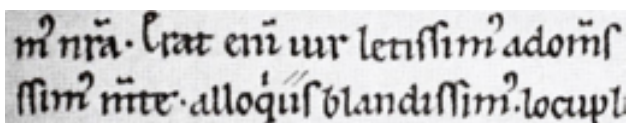 mꝰ nr̄a. Erat eni̅ uır letıſſimꝰ ad om̅ſ
ſſimꝰ m̅te. alloq̇iſ blandıſſimꝰ. locupl